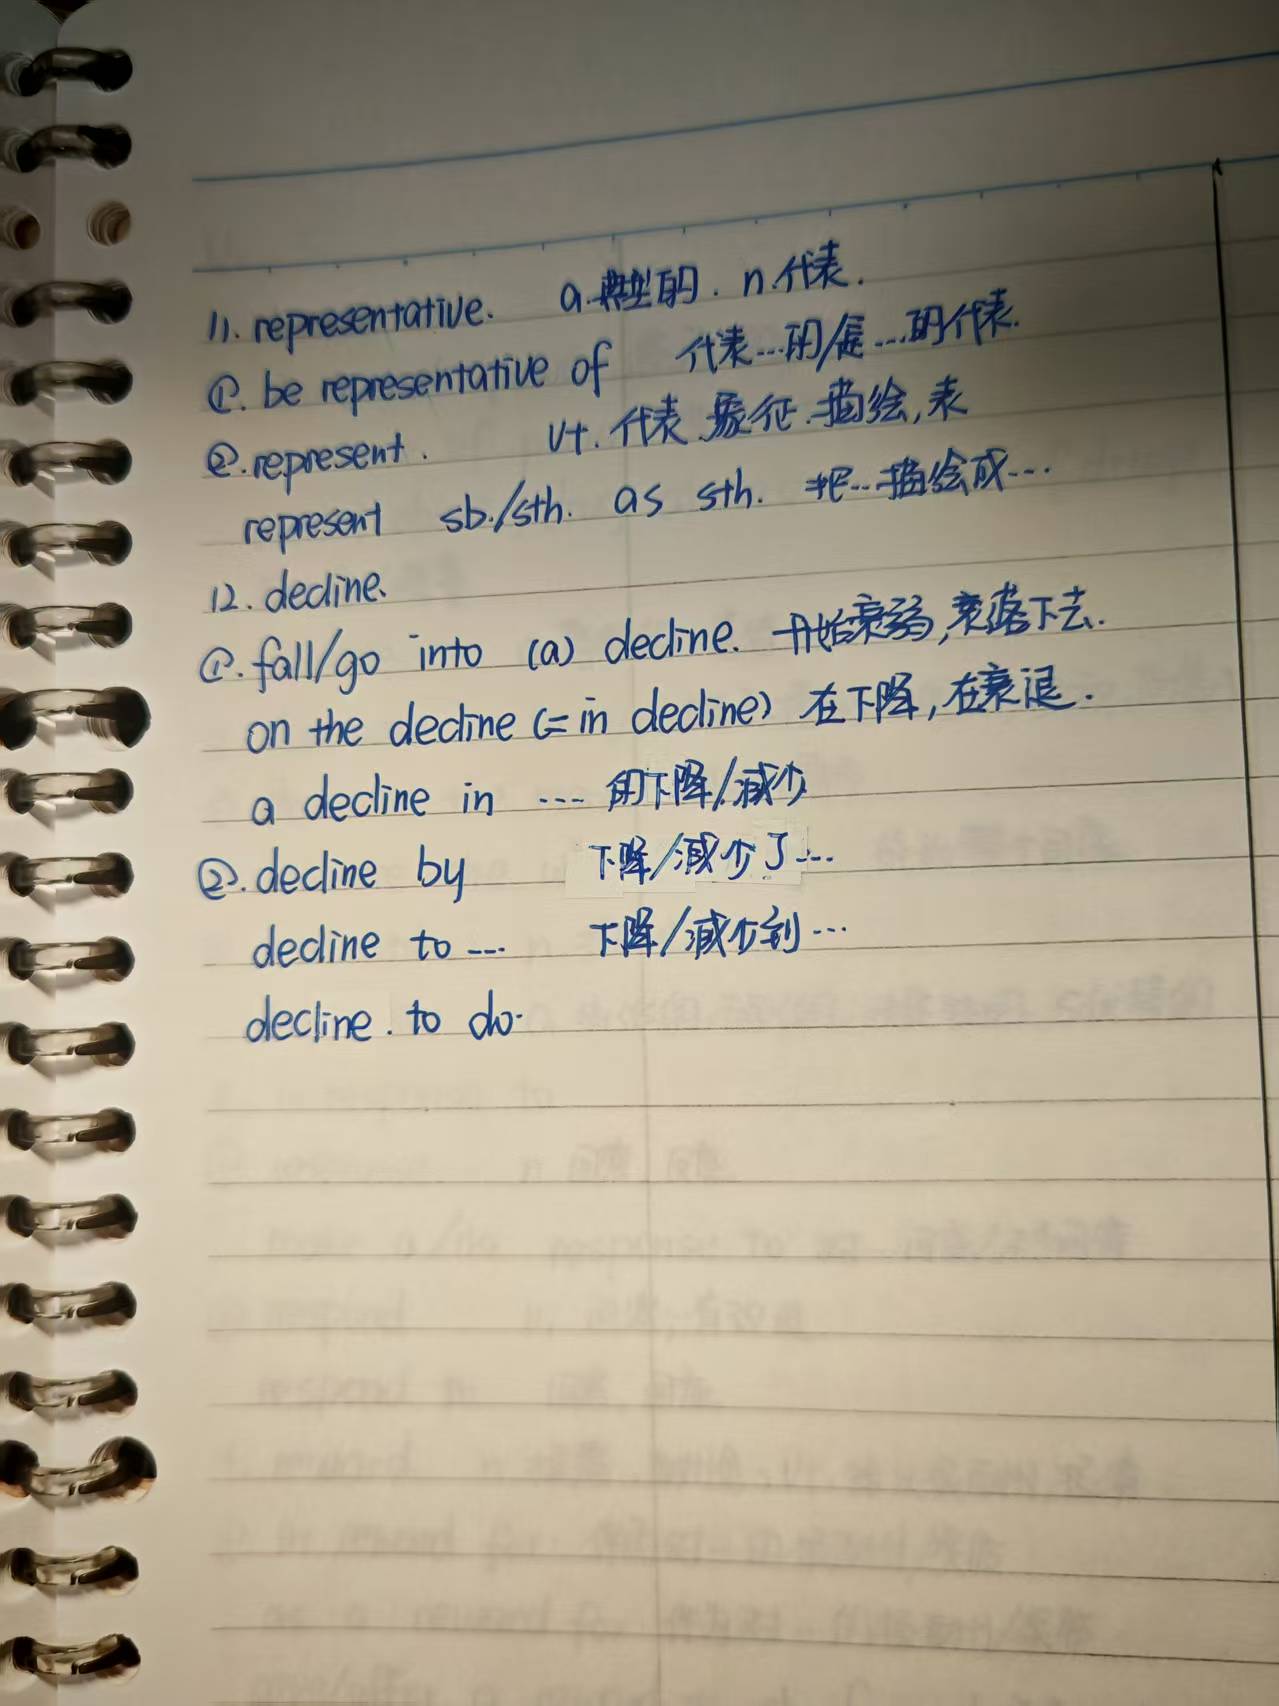 11. representative. a.典型的. n.代表.
①. be representative of 代表...的/是...的代表.
②. represent. vt. 代表.象征.描绘,表
represent sb./sth. as sth. 把...描绘成...
12. decline.
①. fall/go into (a) decline. 开始衰弱,衰落下去.
on the decline (= in decline) 在下降,在衰退.
a decline in ... 的下降/减少
②. decline by 下降/减少了...
decline to ... 下降/减少到...
decline. to do.